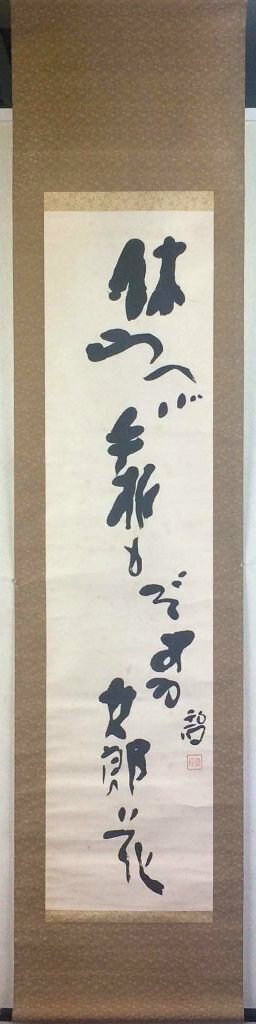 休らへば手折もぞする女郎花